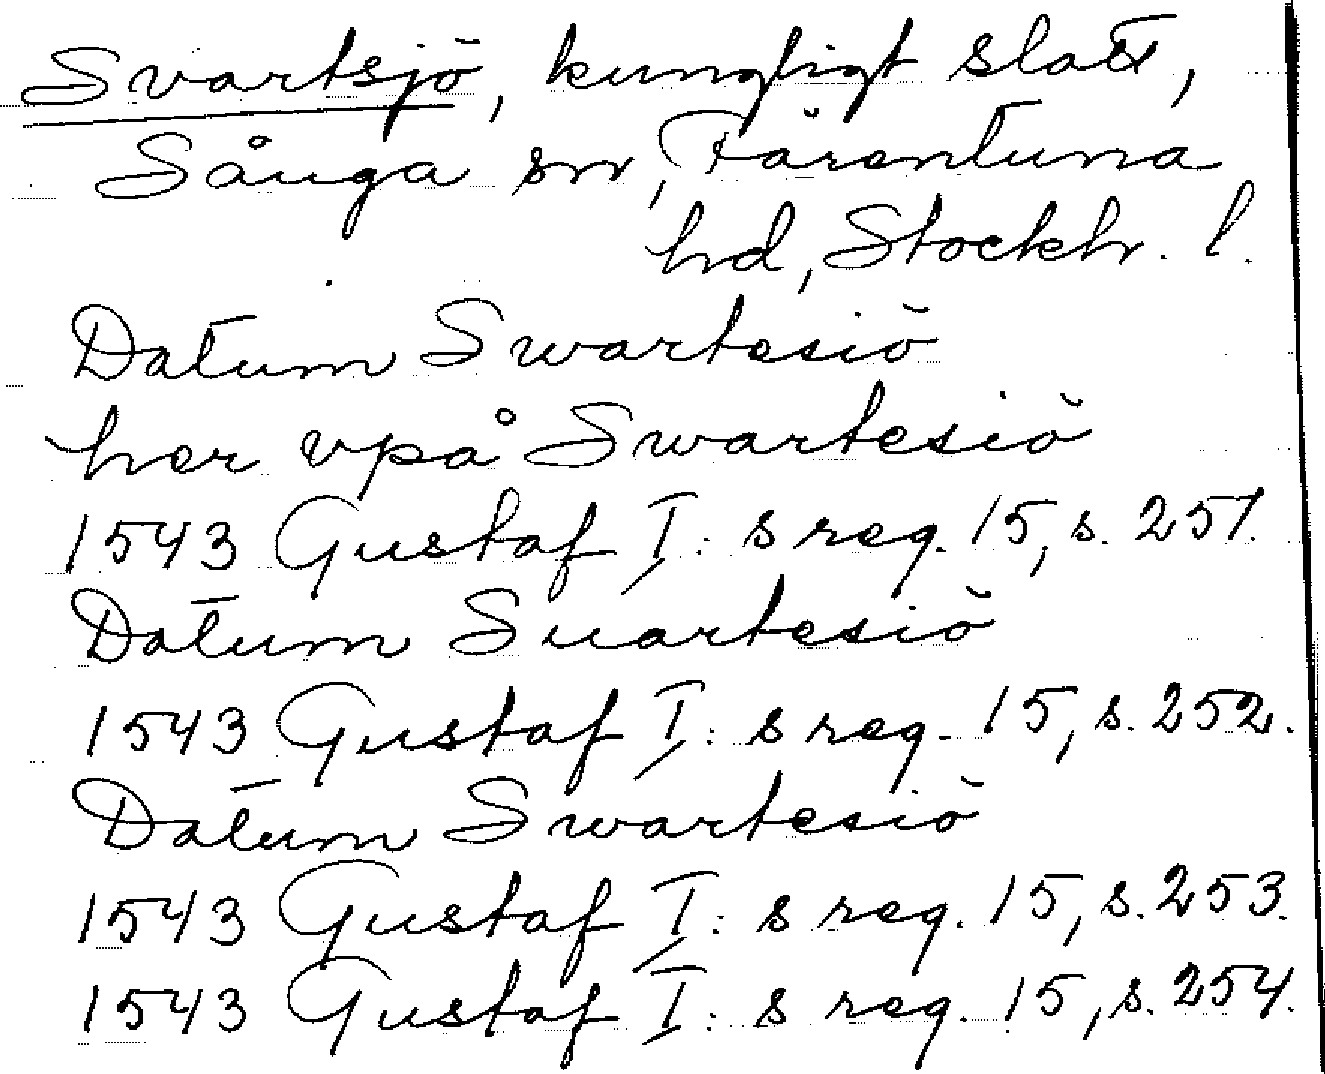 Svartsjö, kungligt slott,
Sånga sn, Färentuna
hd, Stockh. l.
Datum Swartesiö
her vpå Swartesiö
1543 Gustaf I: s reg. 15, s. 251.
Datum Suartesiö
1543 Gustaf I: s reg. 15, s. 252.
Datum Swartesiö
1543 Gustaf I: s reg. 15, s. 253.
1543 Gustaf I: s reg. 15, s. 254.